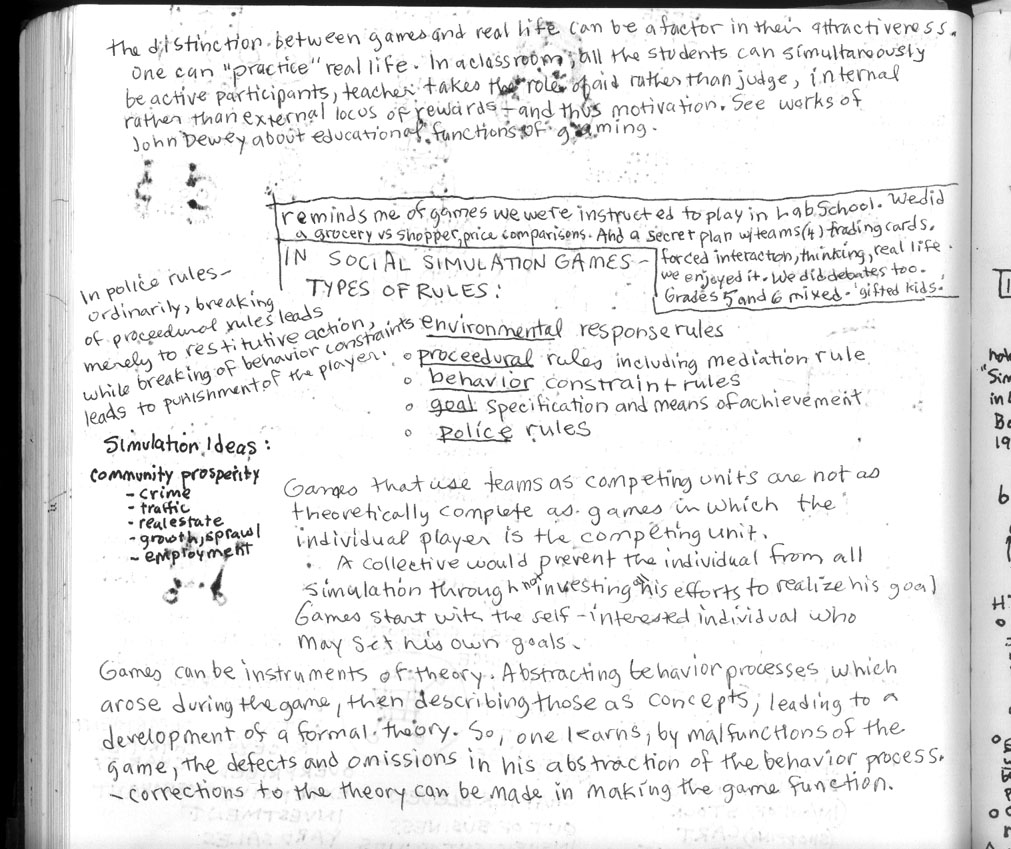 the distinction between games and real life can be a factor in their attractiveness.
One can "practice" real life. In a classroom, all the students can simultaneously
be active participants, teacher takes the role of aid rather than judge, internal
rather than external locus of rewards - and thus motivation. See works of
John Dewey about educational functions of gaming.
reminds me of games we were instructed to play in Lab School. We did
a grocery vs shopper, price comparisons. And a secret plan w/teams (4) trading cards.
forced interaction, thinking, real life.
we enjoyed it. We did debates too.
Grades 5 and 6 mixed - 'gifted kids.
IN SOCIAL SIMULATION GAMES -
TYPES OF RULES:
In police rules -
ordinarily, breaking
of proceedural rules leads
merely to restitutive action,
while breaking of behavior constraints
leads to punishment of the player.
environmental response rules
o proceedural rules including mediation rule
o behavior constraint rules
o goal specification and means of achievement
o police rules
Simulation Ideas:
community prosperity
- crime
- traffic
- real estate
- growth, sprawl
- employment
Games that use teams as competing units are not as
theoretically complete as games in which the
individual player is the competing unit.
. A collective would prevent the individual from all
simulation through not investing all his efforts to realize his goal
Games start with the self-interested individual who
may set his own goals.
Games can be instruments of theory. Abstracting behavior processes which
arose during the game, then describing those as concepts, leading to a
development of a formal theory. So, one learns, by malfunctions of the
game, the defects and omissions in his abstraction of the behavior process.
- corrections to the theory can be made in making the game function.